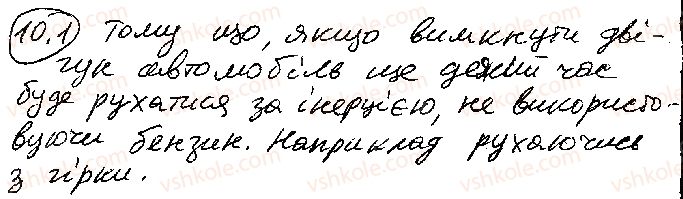 10.1 Тому що, якщо вимкнути дві-
гун автомобіль ще деякий час
буде рухатися за інерцією, не використо-
вуючи бензин. Наприклад рухаючись
з гірки.